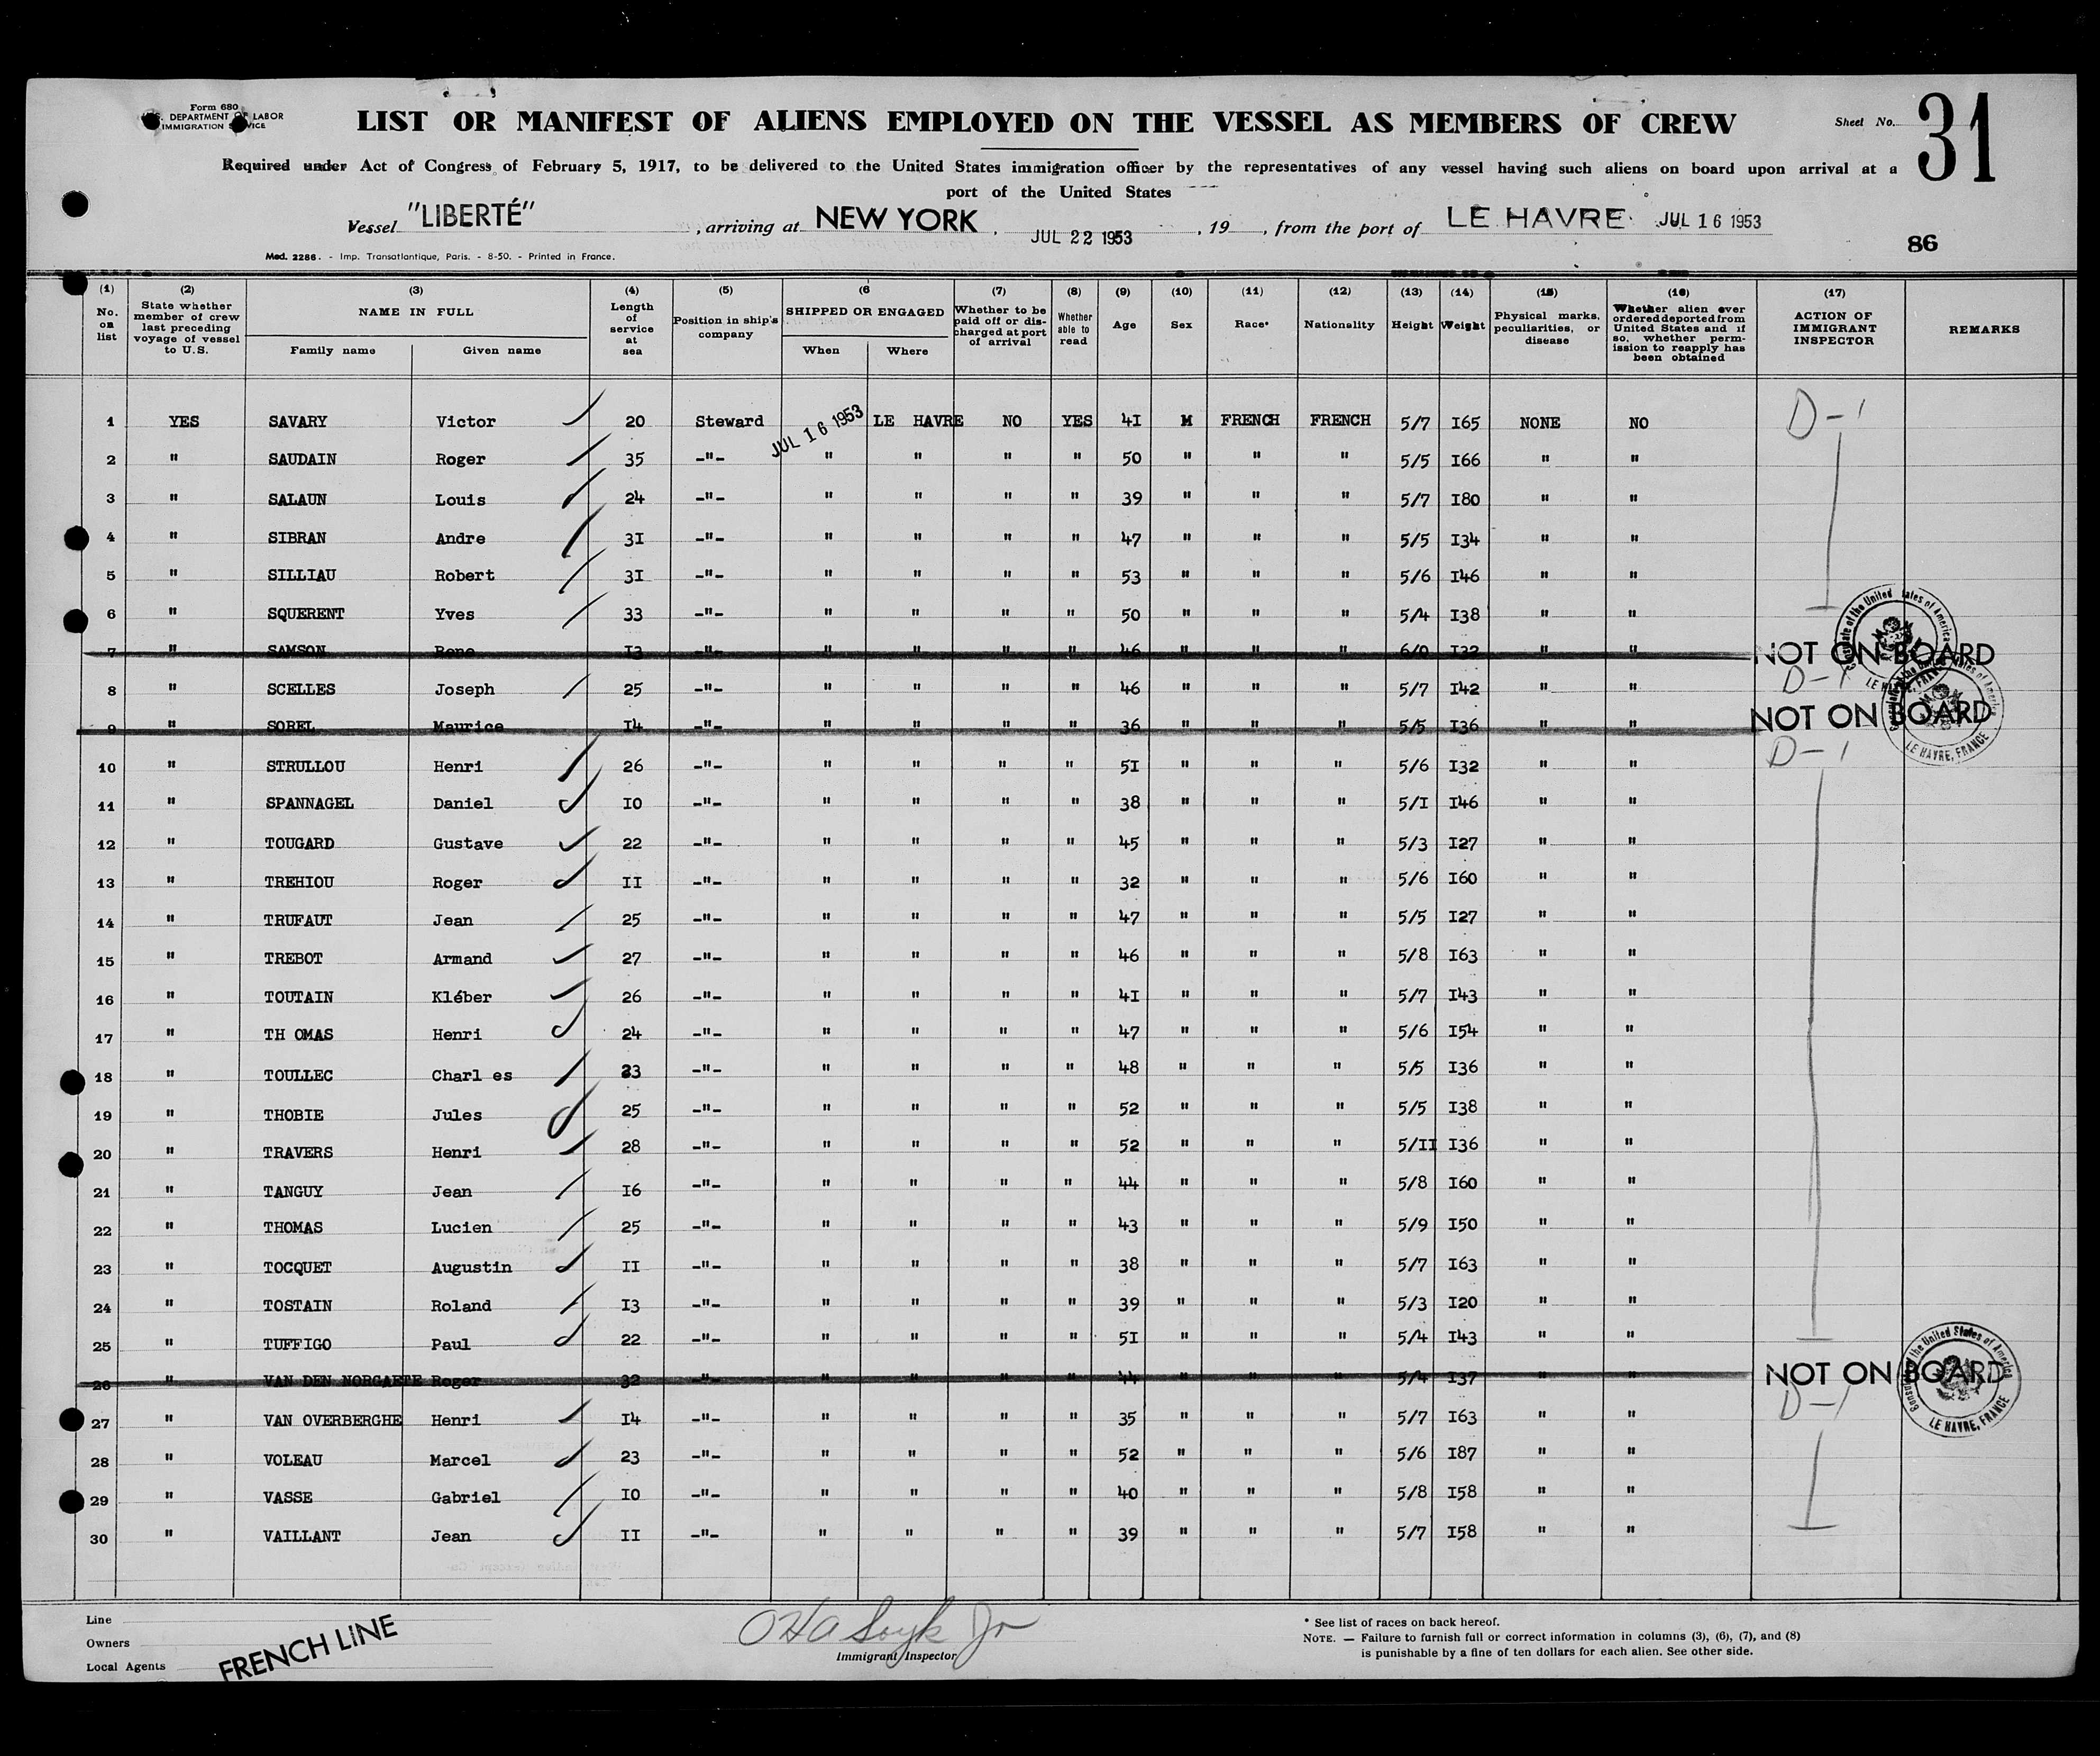 Form 680
U.S. DEPARTMENT OF LABOR
IMMIGRATION SERVICE
LIST OR MANIFEST OF ALIENS EMPLOYED ON THE VESSEL AS MEMBERS OF CREW
Sheet No. 31
Required under Act of Congress of February 5, 1917, to be delivered to the United States immigration officer by the representatives of any vessel having such aliens on board upon arrival at a
port of the United States
Vessel "LIBERTÉ", arriving at NEW YORK, JUL 22 1953, 19, from the port of LE HAVRE JUL 16 1953
86
Mod. 2286. - Imp. Transatlantique, Paris. - 8-50. - Printed in France.
(1) No. on list (2) State whether member of crew last preceding voyage of vessel to U.S. (3) NAME IN FULL Family name Given name (4) Length of service at sea (5) Position in ship's company (6 SHIPPED OR ENGAGED When Where (7) Whether to be paid off or discharged at port of arrival (8) Whether able to read (9) Age (10) Sex (11) Race* (12) Nationality (13) Height (14) Weight (15) Physical marks, peculiarities, or disease (16) Whether alien ever ordered deported from United States and if so, whether permission to reapply has been obtained (17) ACTION OF IMMIGRANT INSPECTOR REMARKS
1 YES SAVARY Victor 20 Steward JUL 16 1953 LE HAVRE NO YES 4I M FRENCH FRENCH 5/7 I65 NONE NO D-1
2 " SAUDAIN Roger 35 -"- " " " " 50 " " " 5/5 I66 " "
3 " SALAUN Louis 24 -"- " " " " 39 " " " 5/7 I80 " "
4 " SIBRAN Andre 3I -"- " " " " 47 " " " 5/5 I34 " "
5 " SILLIAU Robert 3I -"- " " " " 53 " " " 5/6 I46 " "
6 " SQUERENT Yves 33 -"- " " " " 50 " " " 5/4 I38 " "
7 " SAMSON Rene I3 -"- " " " " 46 " " " 6/0 I32 " " NOT ON BOARD
8 " SCELLES Joseph 25 -"- " " " " 46 " " " 5/7 I42 " " D-1
9 " SOREL Maurice I4 -"- " " " " 36 " " " 5/5 I36 " " NOT ON BOARD
LE HAVRE, FRANCE
10 " STRULLOU Henri 26 -"- " " " " 5I " " " 5/6 I32 " " D-1
11 " SPANNAGEL Daniel I0 -"- " " " " 38 " " " 5/I I46 " "
12 " TOUGARD Gustave 22 -"- " " " " 45 " " " 5/3 I27 " "
13 " TREHIOU Roger II -"- " " " " 32 " " " 5/6 I60 " "
14 " TRUFAUT Jean 25 -"- " " " " 47 " " " 5/5 I27 " "
15 " TREBOT Armand 27 -"- " " " " 46 " " " 5/8 I63 " "
16 " TOUTAIN Kléber 26 -"- " " " " 4I " " " 5/7 I43 " "
17 " TH OMAS Henri 24 -"- " " " " 47 " " " 5/6 I54 " "
18 " TOULLEC Charl es 23 -"- " " " " 48 " " " 5/5 I36 " "
19 " THOBIE Jules 25 -"- " " " " 52 " " " 5/5 I38 " "
20 " TRAVERS Henri 28 -"- " " " " 52 " " " 5/II I36 " "
21 " TANGUY Jean I6 -"- " " " " 44 " " " 5/8 I60 " "
22 " THOMAS Lucien 25 -"- " " " " 43 " " " 5/9 I50 " "
23 " TOCQUET Augustin II -"- " " " " 38 " " " 5/7 I63 " "
24 " TOSTAIN Roland I3 -"- " " " " 39 " " " 5/3 I20 " "
25 " TUFFIGO Paul 22 -"- " " " " 5I " " " 5/4 I43 " "
26 " VAN DEN NORGAETE Roger 32 -"- " " " " 44 " " " 5/4 I37 " " NOT ON BOARD
LE HAVRE, FRANCE
27 " VAN OVERBERGHE Henri I4 -"- " " " " 35 " " " 5/7 I63 " " D-1
28 " VOLEAU Marcel 23 -"- " " " " 52 " " " 5/6 I87 " "
29 " VASSE Gabriel I0 -"- " " " " 40 " " " 5/8 I58 " "
30 " VAILLANT Jean II -"- " " " " 39 " " " 5/7 I58 " "
Line
Owners
Local Agents
FRENCH LINE
Immigrant Inspector
* See list of races on back hereof.
NOTE. — Failure to furnish full or correct information in columns (3), (6), (7), and (8)
is punishable by a fine of ten dollars for each alien. See other side.